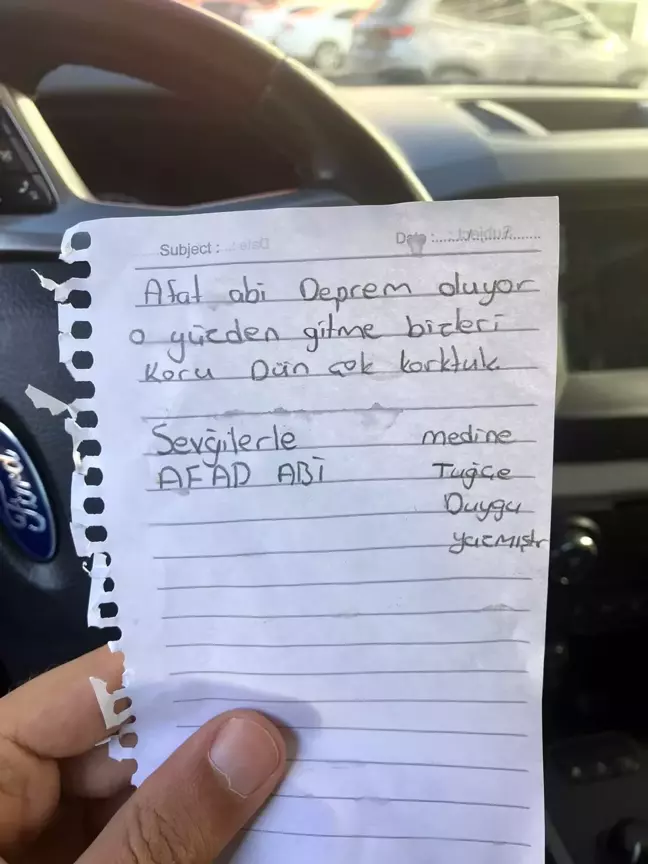 Subject :
Date :
Afat abi Deprem oluyor
o yüzden gitme bizleri
Koru Dün çok korktuk
Sevğilerle medine
AFAD ABİ Tuğçe
Duygu
yazmıştır
Ford